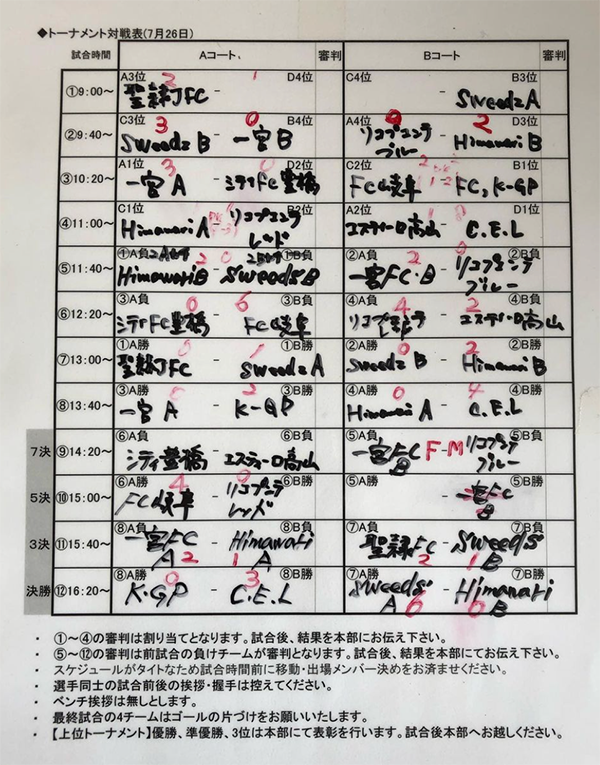 ◆トーナメント対戦表(7月26日)
試合時間 Aコート、 審判 Bコート 審判
①9:00～ A3位 2 - 1 D4位 C4位 - B3位
聖隷JFC SweedzA
②9:40～ C3位 3 - 0 B4位 A4位 0 - 2 D3位
Sweedz B 一宮B リコプエンテ ブルー Himawari B
③10:20～ A1位 3 - 0 D2位 C2位 2 - B1位
一宮 A シティFC豊橋 FC岐阜 FC,K-GP
④11:00～ C1位 - B2位 A2位 1 - 8 D1位
Himawari A リコプエンテ レッド エスティーロ高山 C.E.L
⑤11:40～ ①A負 2 - 0 ①B負 ②A負 2 - 0 ②B負
HimawariB SweedsB 一宮FC・B リコプエンテ ブルー
⑥12:20～ ③A負 0 - 6 ③B負 ④A負 4 - 2 ④B負
シティFC豊橋 FC岐阜 リコプエンテ エスティーロ高山
⑦13:00～ ①A勝 0 - 1 ①B勝 ②A勝 0 - 2 ②B勝
聖隷JFC Sweedz A Sweedz B Himawari B
⑧13:40～ ③A勝 0 - 2 ③B勝 ④A勝 0 - 4 ④B勝
一宮 A K-GP Himawari A C.E.L
7決 ⑨14:20～ ⑥A負 - ⑥B負 ⑤A負 F-M ⑤B負
シティ豊橋 エスティーロ高山 一宮FC B リコプエンテ ブルー
5決 ⑩15:00～ ⑥A勝 4 - 0 ⑥B勝 ⑤A勝 - ⑤B勝
FC岐阜 リコプエンテ レッド 一宮FC B
3決 ⑪15:40～ ⑧A負 2 - 1 ⑧B負 ⑦A負 2 - 1 ⑦B負
一宮FC A Himawari A 聖隷FC Sweeds B
決勝 ⑫16:20～ ⑧A勝 0 - 3 ⑧B勝 ⑦A勝 6 - 0 ⑦B勝
K・GP C.E.L Sweeds A Himawari B
・ ①～④の審判は割り当てとなります。試合後、結果を本部にお伝え下さい。
・ ⑤～⑫の審判は前試合の負けチームが審判となります。試合後、結果を本部にてお伝え下さい。
・ スケジュールがタイトなため試合時間前に移動・出場メンバー決めをお済ませください。
・ 選手同士の試合前後の挨拶・握手は控えてください。
・ ベンチ挨拶は無しとします。
・ 最終試合の4チームはゴールの片づけをお願いいたします。
・ 【上位トーナメント】優勝、準優勝、3位は本部にて表彰を行います。試合後本部へお越しください。